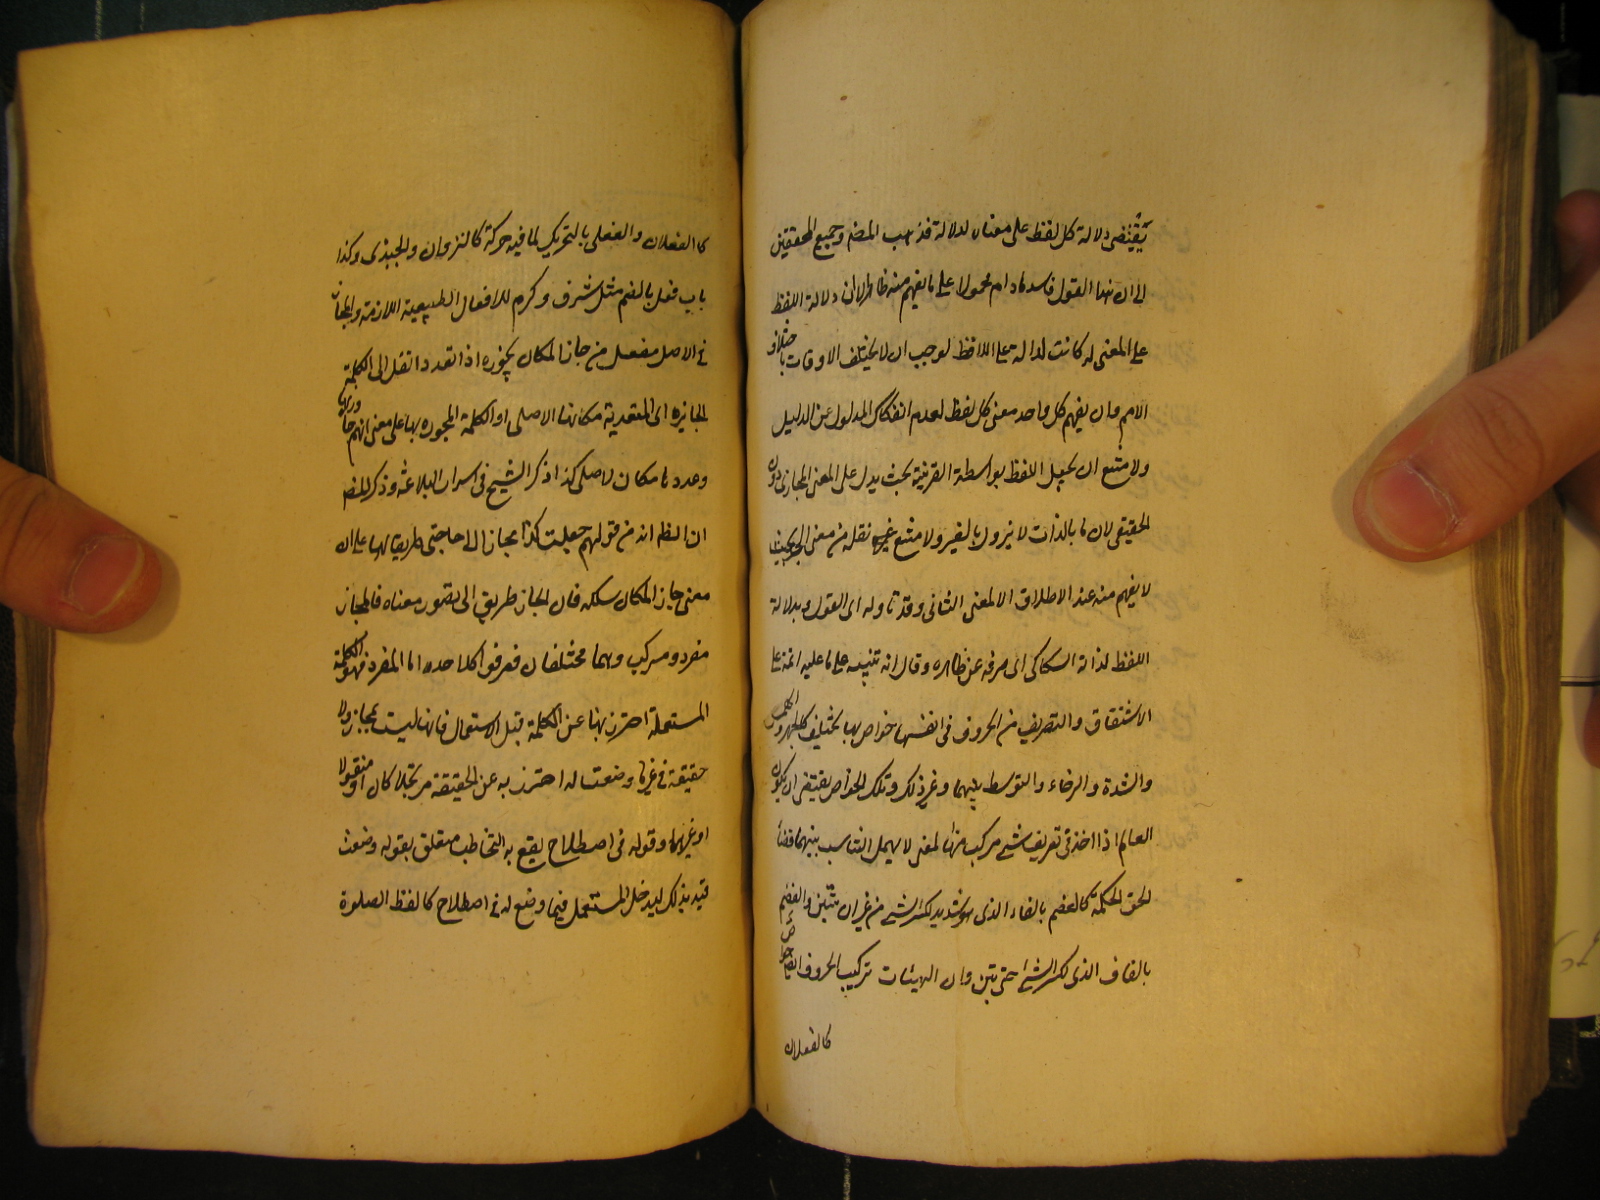 يقتضى دلالة كل لفظ على معناه لدلالة فذهب المض وجميع المحققين
الى ان هذا القول فاسد مادام محمولا على ما يفهم منه ظاهرا لان دلالة اللفظ
على المعنى له كانت لدالة على اللافظ لوجب ان لا يختلف الاوقات باختلاف
الامم وان يفهم كل واحد معنى كل لفظ لعدم انفكاك المدلول عن الدليل
ولا متنع ان يجعل اللفظ بواسطة القرينة بحيث يدل على المعنى المجازى دون
الحقيقى لان ما بالذات لا يزول بالغير ولا متنع نقله من معنى الى بحيث
لا يفهم منه عند الاطلاق الا المعنى الثانى وقد تاوله اى القول بدلالة
اللفظ لذاته السكاكى اى صرفه عن ظاهره وقال انه تنبيه على ما عليه ائمة على
الاشتقاق والتصريف من الحروف فى انفسها خواص بها يختلف كالجهر والهمس
والشدة والرخاء والتوسط بينهما وغير ذلك وتلك الخواص يقتضى ان يكون
العالم اذا اخذ فى تعريف شئ مركب منها لمعنى لا يهمل التناسب بينهما قضاء
لحق الحكمة كالفصم بالفاء الذى هو شديد لكسر الشئ من غير ان تبين والقصم
بالقاف الذى لكسر الشئ حتى تبين وان الهيئات تركيب الحروف ايضا خواص
كالفعلان
كالفعلان والفعلى بالتحريك لما فيه حركة كالنزوان والحيدى وكذا
باب فعل بالضم مثل شرف وكرم للافعال الطبيعية اللازمة والمجاز
فى الاصل مفعل من جاز المكان يجوزه اذا تعداه نقل الى الكلمة
الجائزة اى المتعدية مكانها الاصلى او الكلمة المجوز بها على معنى انهم جازوا بها
وعدوها مكان الاصلى كذا ذكر الشيخ فى اسرار البلاغة وذكر المض
ان الظ انه من قولهم جعلت كذا مجازا الى حاجتى طريقا لها على ان
معنى جاز المكان سلكه فان المجاز طريق الى تصور معناه فالمجاز
مفرد ومركب وهما مختلفان فعرفوا كلا حده اما المفرد فهو الكلمة
المستعملة احترز بهنا عن الكلمة قبل الاستعمال فانها ليست بمجاز ولا
حقيقة فى غير ما وضعت له احترز به عن الحقيقة مرتجلا كان او منقولا
او غيرهما وقوله فى اصطلاح يقع به التخاطب متعلق بقوله وضعت
قيد بذلك ليدخل المستعمل فيما وضع له فى اصطلاح كالفظ الصلوة